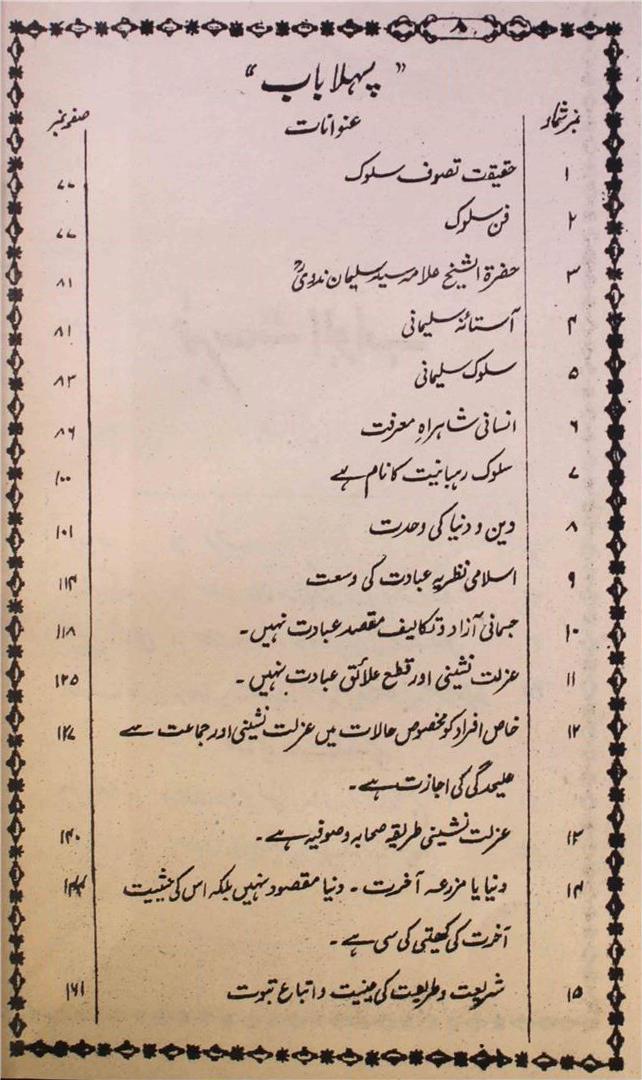 ۸
”پہلا باب“
نمبر شمار عنوانات صفحہ نمبر
۱ حقیقت تصوف سلوک ۷۷
۲ فن سلوک ۷۷
۳ حضرۃ الشیخ علامہ سید سلیمان ندویؒ ۸۱
۴ آستانۂ سلیمانی ۸۱
۵ سلوک سلیمانی ۸۳
۶ انسانی شاہراہِ معرفت ۸۶
۷ سلوک رہبانیت کا نام ہے ۱۰۰
۸ دین و دنیا کی وحدت ۱۰۱
۹ اسلامی نظریہ عبادت کی وسعت ۱۱۴
۱۰ جسمانی آزاد و تکالیف مقصد عبادت نہیں۔ ۱۱۸
۱۱ عزلت نشینی اور قطع علائق عبادت نہیں۔ ۱۲۵
۱۲ خاص افراد کو مخصوص حالات میں عزلت نشینی اور جماعت سے ۱۲۷
علیحدگی کی اجازت ہے۔
۱۳ عزلت نشینی طریقہ صحابہ و صوفیہ ہے۔ ۱۴۰
۱۴ دنیا یا مزرعہ آخرت۔ دنیا مقصود نہیں بلکہ اس کی حیثیت
آخرت کی کھیتی کی سی ہے۔
۱۵ شریعت و طریقت کی عینیت و اتباع نبوت ۱۶۱